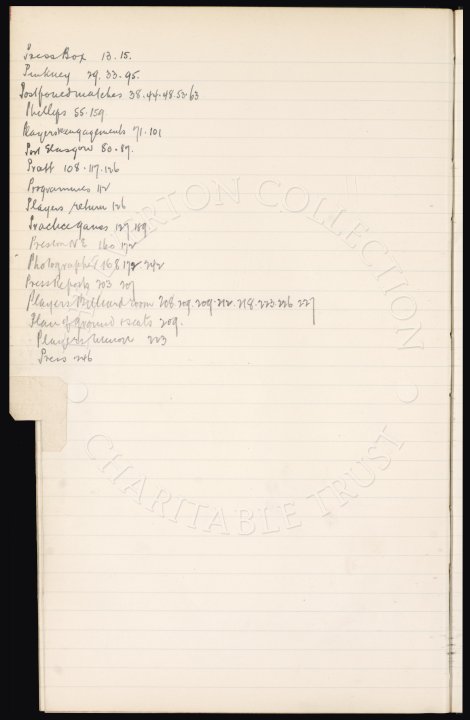 Press Box 13.15.
Pinkney 29.33.95
Postponed matches 38.44.48.53.63
Phillips 55.159
Players reengagements 71.101
Port Glasgow 80.87.
Pratt 108.117.126
Programmes 112
Players return 126
Practice games 127.189
Preston N E 160 172
Photographer 168 172.242
Press Reports 203 207
Players Billiard Room 208.209.209.212.218.223.226 227
Plan of ground & seats 209.
Players 223
Press 246
"EVERTON COLLECTION"
CHARITABLE TRUST